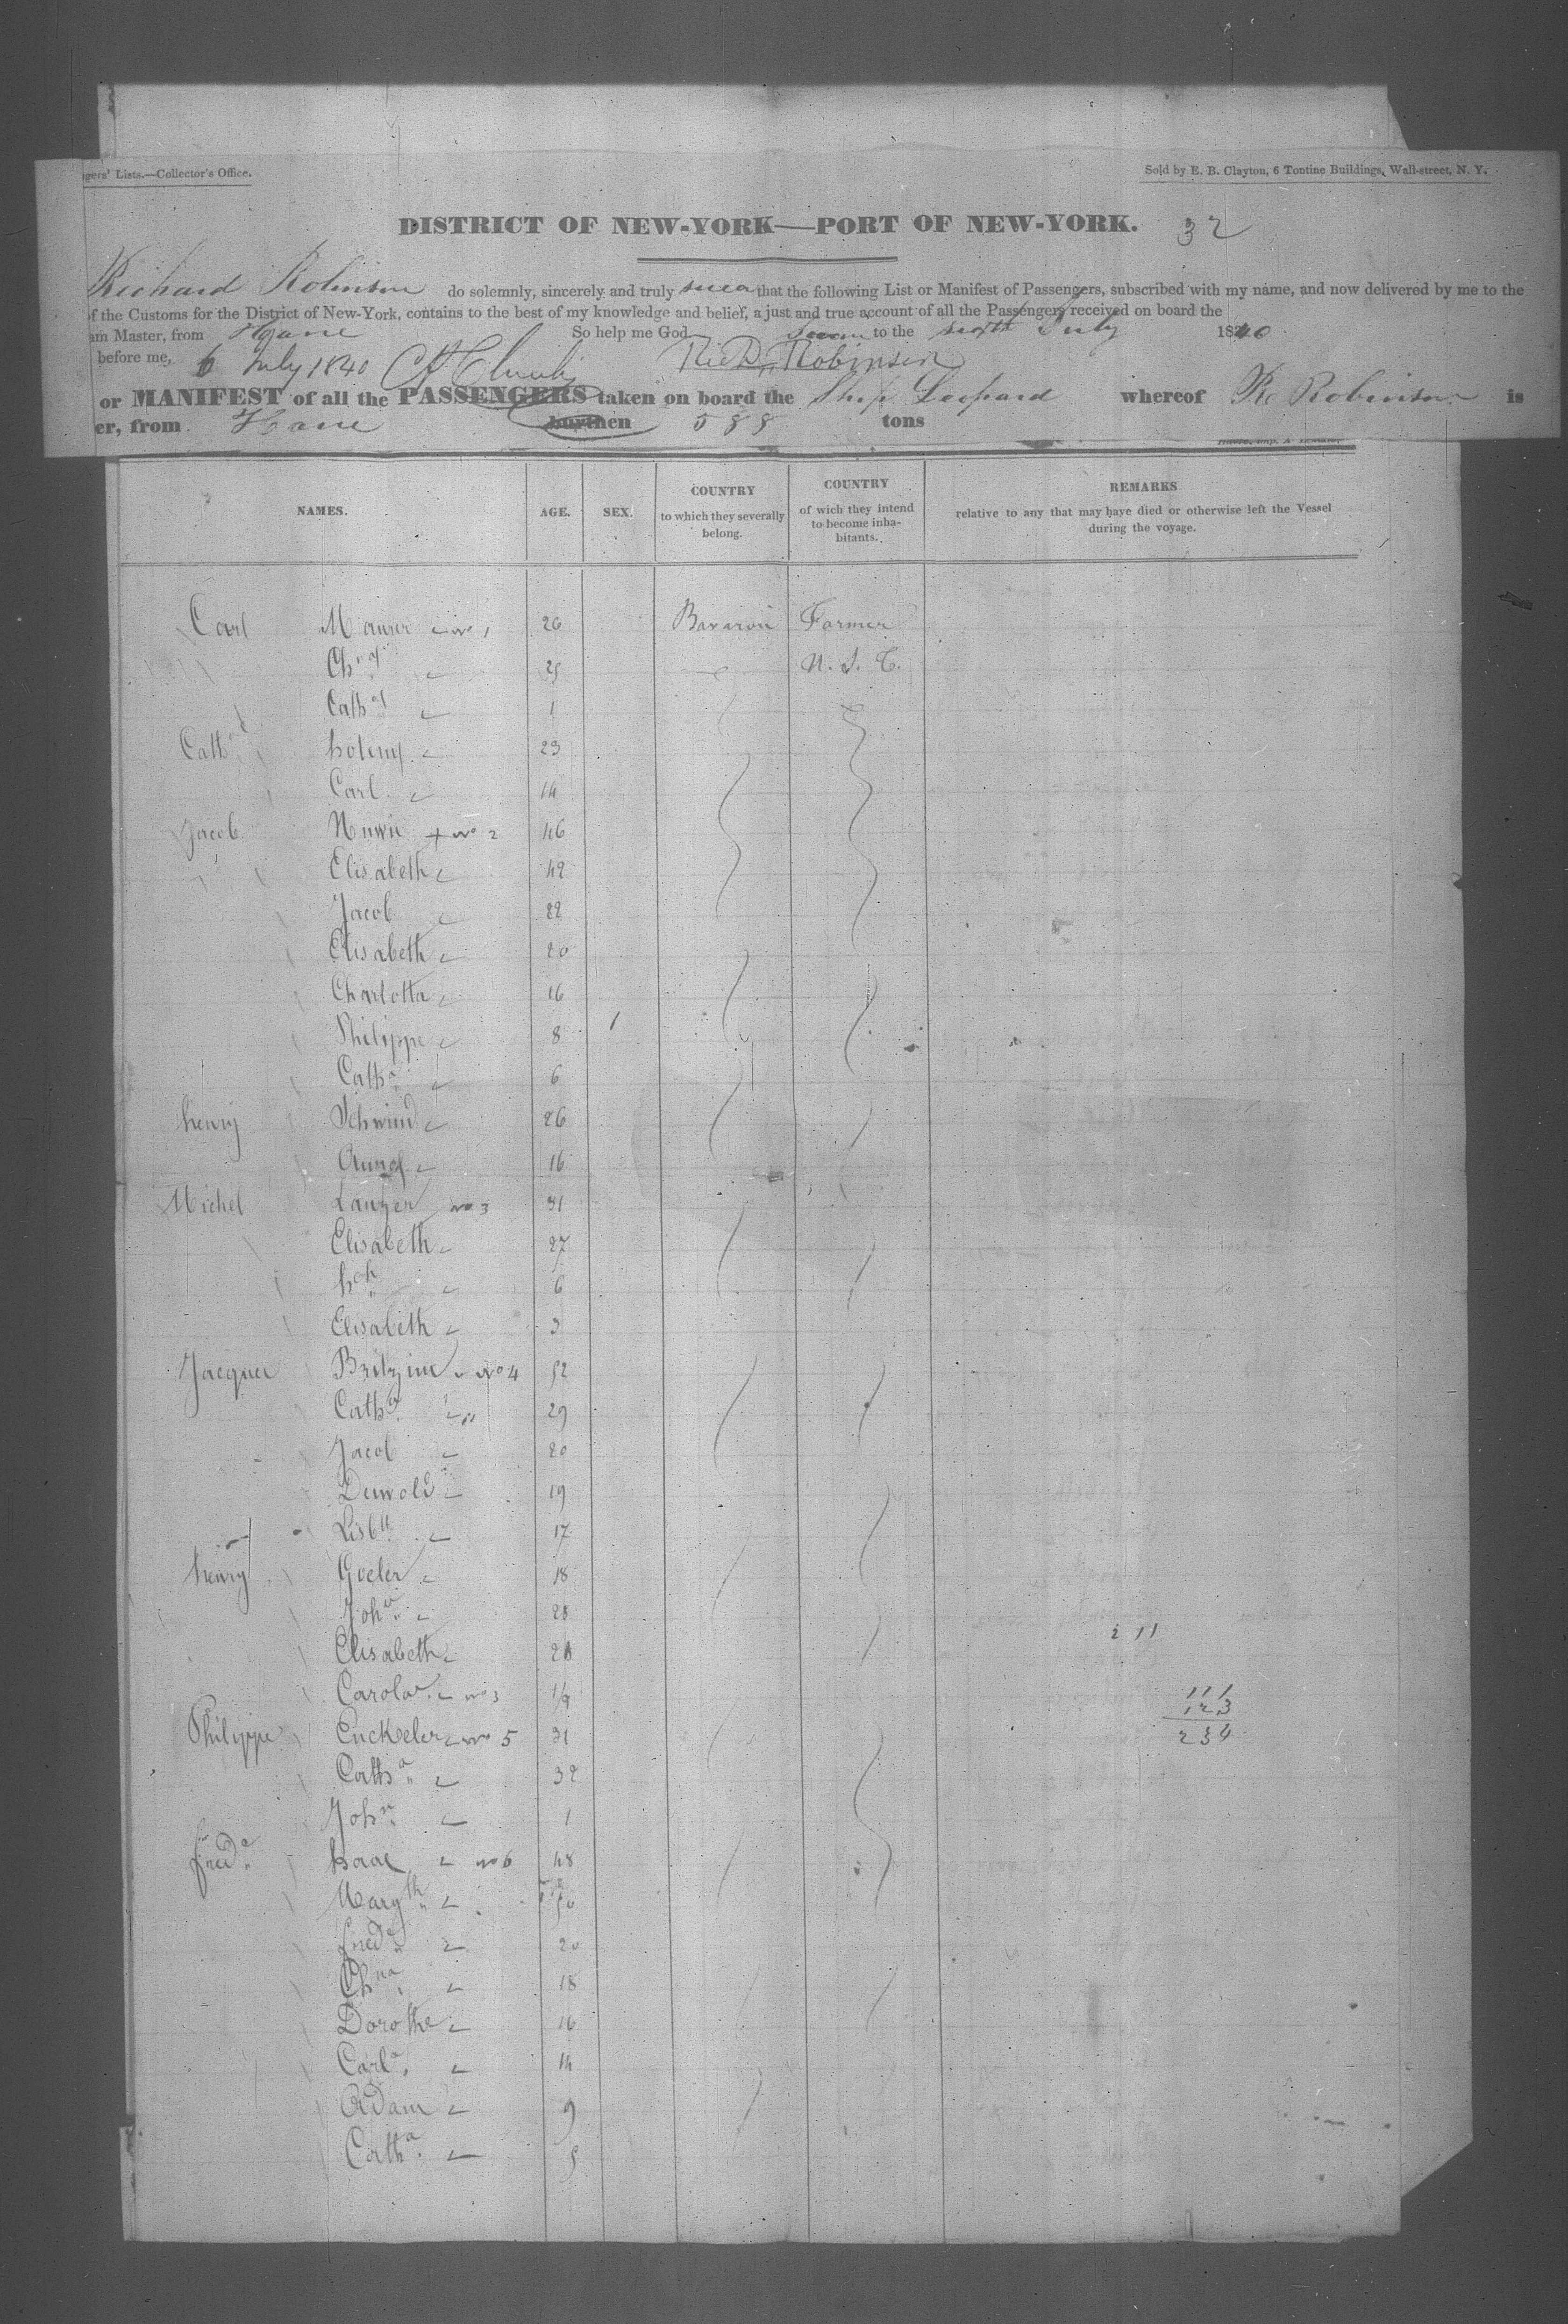 gers' Lists.—Collector's Office.
Sold by E. B. Clayton, 6 Tontine Buildings, Wall-street, N. Y.
DISTRICT OF NEW-YORK—PORT OF NEW-YORK. 32
Richard Robinson do solemnly, sincerely and truly swear that the following List or Manifest of Passengers, subscribed with my name, and now delivered by me to the
of the Customs for the District of New-York, contains to the best of my knowledge and belief, a just and true account of all the Passengers received on board the
am Master, from Havre So help me God Sworn to the sixth July 1840
before me, 6 July 1840 Richd Robinson
or MANIFEST of all the PASSENGERS taken on board the Ship Leopard whereof R. Robinson is
er, from Havre burthen 588 tons
NAMES. AGE. SEX. COUNTRY to which they severally belong. COUNTRY of wich they intend to become inhabitants. REMARKS relative to any that may have died or otherwise left the Vessel during the voyage.
Carl Maurer No 1 26 Farmer
25
Cath 1
Cath 23
Carl 14
Jacob No 2 46
Elisabeth 42
Jacob 22
Elisabeth 20
Charlotta 16
Philippe 8 1
Catha 6
henry Schwind 26
16
Michel No 3 31
Elisabeth 27
6
Elisabeth 3
Jacques No 4 52
Catha 29
Jacob 20
Dewold 19
Lisbth 17
henry Goeler 18
Johna
Elisabeth
211
Carola No 3
111
123
234
Philippe No 5 31
Catha 32
Johna 1
freda Isaac No 6 48
Margth 50
freda 20
Chna 18
Dorothe 16
Carla 14
Adam 9
Catha 5